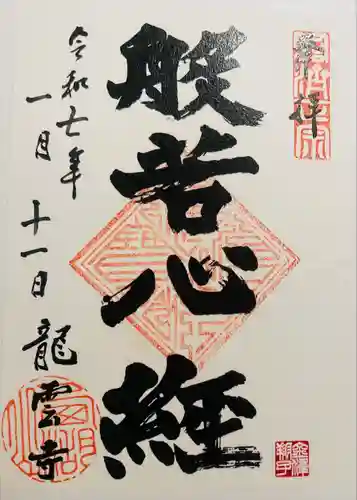 奉拝
般若心経
令和七年
一月
十一日
龍雲寺